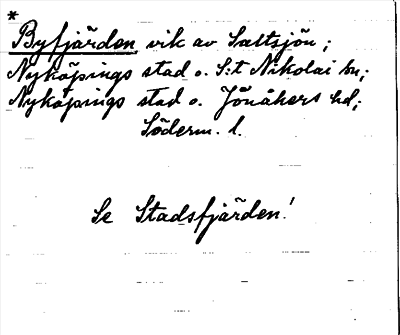 *
Byfjärden vik av Saltsjön;
Nyköpings stad o. S:t Nikolai sn;
Nyköpings stad o. Jönåkers hd;
Söderm. l.
Se Stadsfjärden!